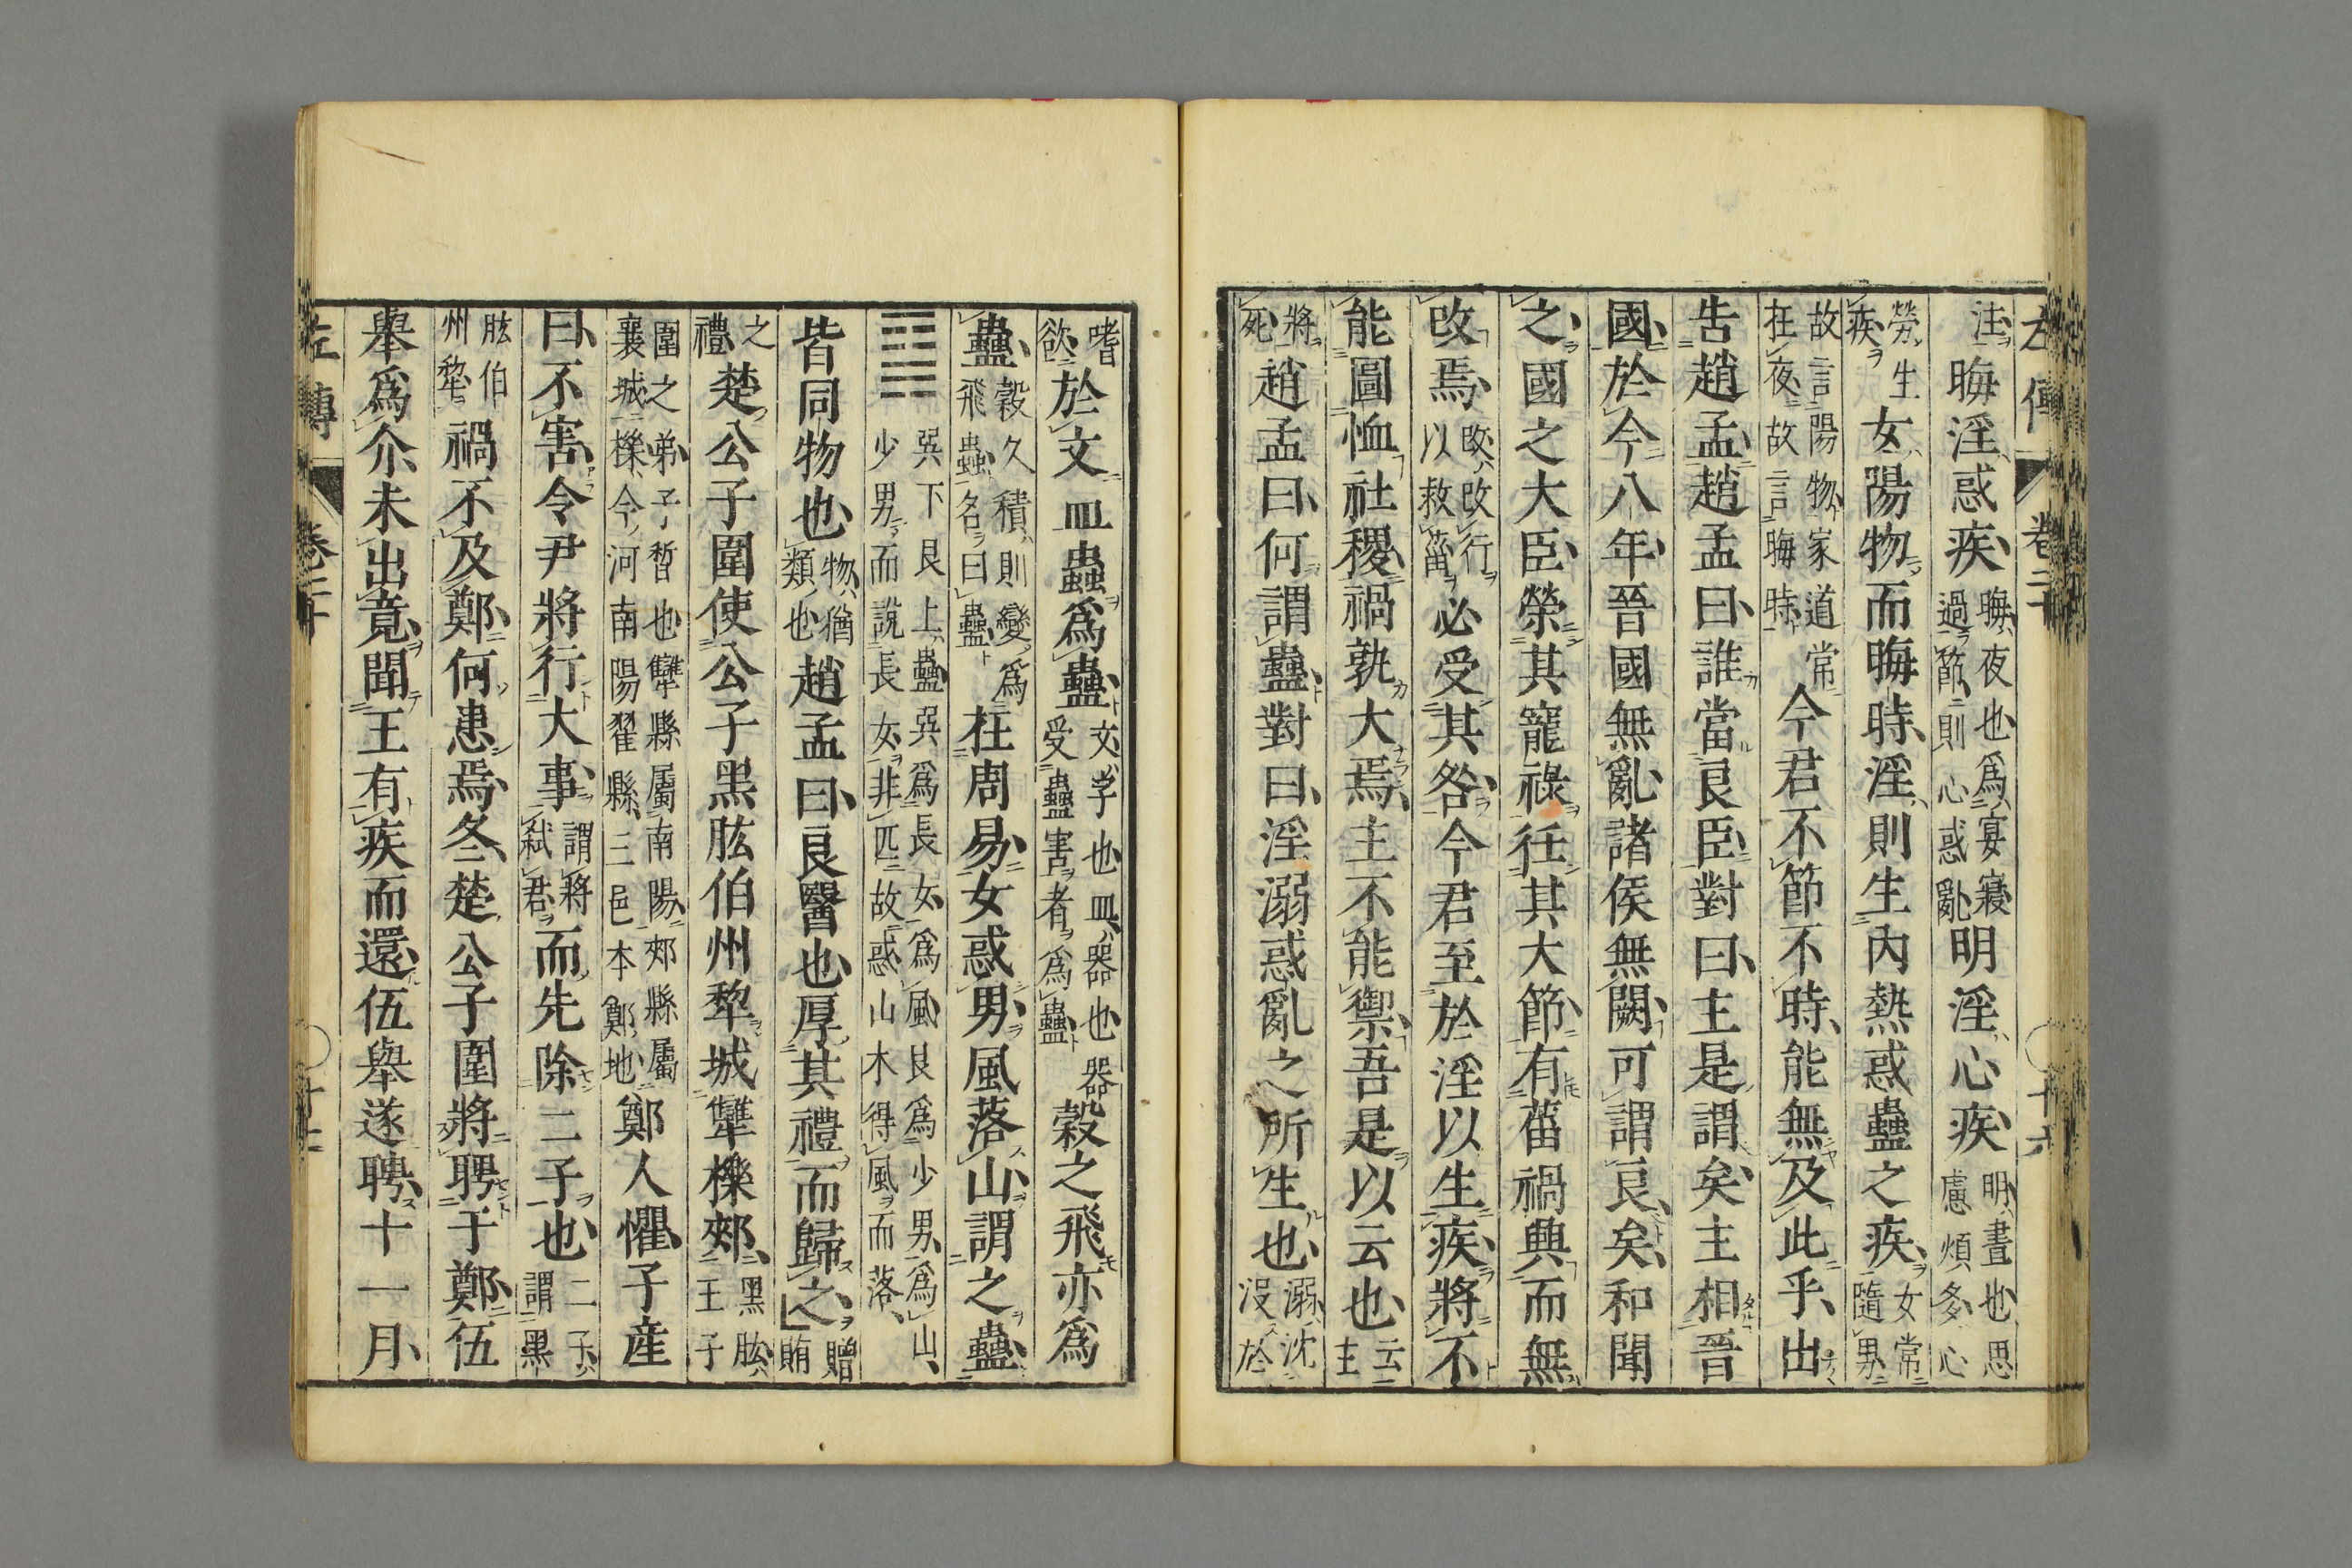 左傳 卷二十 十六
注晦淫惑疾晦夜也爲宴寢過節則心惑亂明淫心疾明晝也思慮煩多心
勞生疾女陽物而晦時淫則生内熱惑蠱之疾女常隨男
故言陽物家道常在夜故言晦時今君不節不時能無及此乎出
告趙孟趙孟曰誰當良臣對曰主是謂矣主相晉
國於今八年晉國無亂諸侯無闕可謂良矣和聞
之國之大臣榮其寵祿任其大節有菑禍興而無
改焉改改行以救菑必受其咎今君至於淫以生疾將不
能圖恤社稷禍孰大焉主不能禦吾是以云也云主
將死趙孟曰何謂蠱對曰淫溺惑亂之所生也溺沈没於
嗜欲於文皿蟲爲蠱文字也皿器也器受蠱害者爲蠱穀之飛亦爲
蠱穀久積則變爲飛蟲名曰蠱在周易女惑男風落山謂之蠱
䷑巽下艮上蠱巽爲長女爲風艮爲少男爲山少男而說長女非匹故惑山木得風而落
皆同物也物猶類也趙孟曰良醫也厚其禮而歸之贈賄
之禮楚公子圍使公子黑肱伯州犂城犨櫟郟黑肱王子
圍之弟子晳也犨縣屬南陽郟縣屬襄城櫟今河南陽翟縣三邑本鄭地鄭人懼子産
曰不害令尹將行大事謂將弑君而先除二子也二子謂黑
肱伯州犂禍不及鄭何患焉冬楚公子圍將聘于鄭伍
舉爲介未出竟聞王有疾而還伍舉遂聘十一月
左傳 卷二十 十七